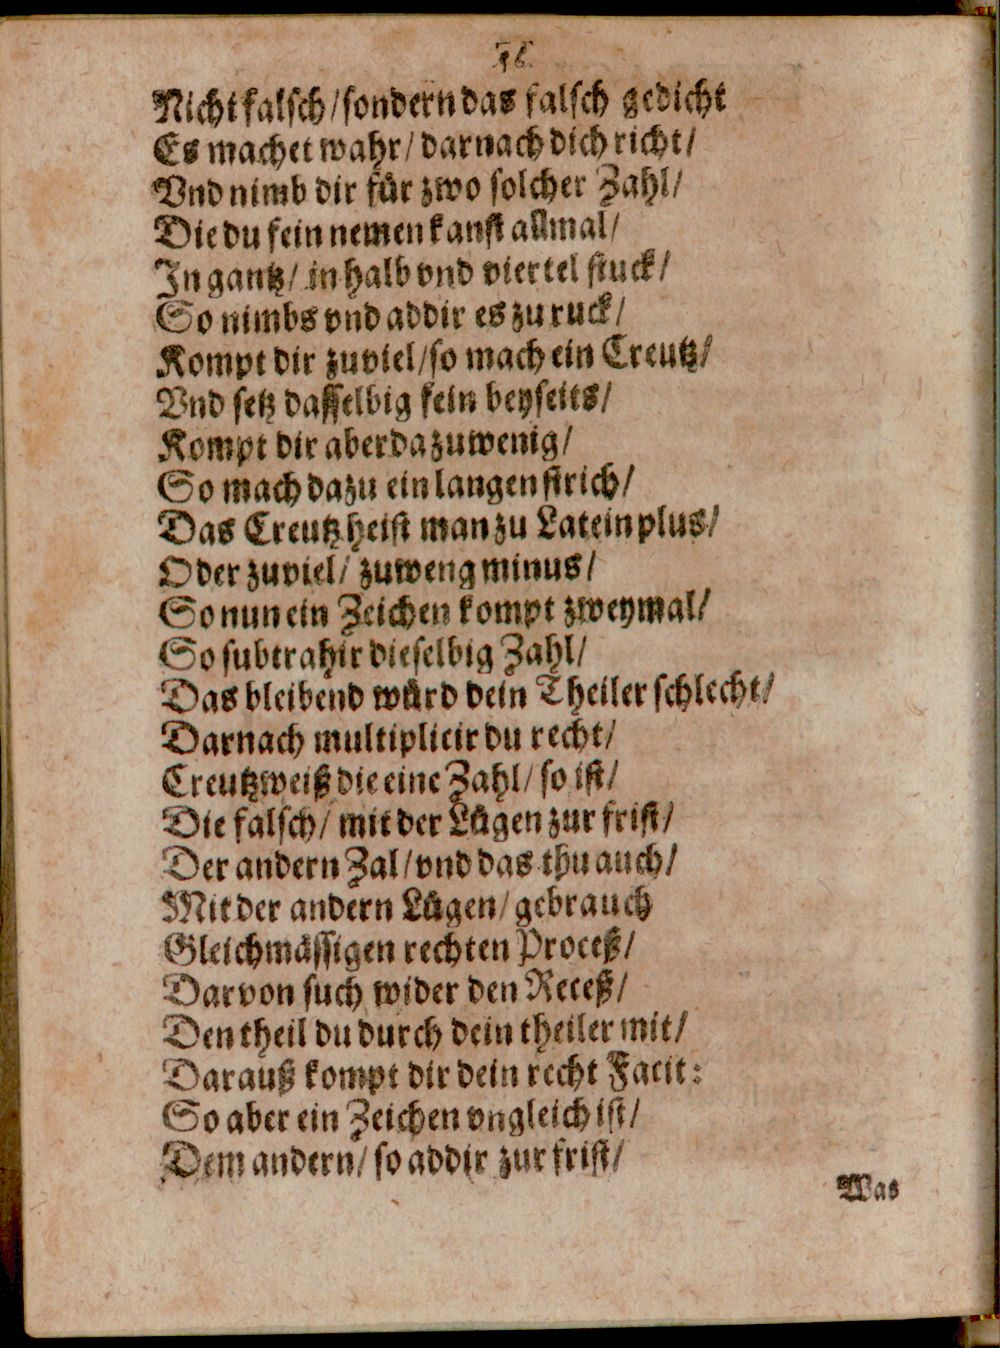 56.
Nicht falsch/ sondern das falsch gedicht
Es machet wahr/ darnach dich richt/
Vnd nimb dir für zwo solcher Zahl/
Die du fein nemen kanst allmal/
In gantz/ in halb vnd viertel stuck/
So nimbs vnd addir es zu ruck/
Kompt dir zuviel/ so mach ein Creutz/
Vnd setz dasselbig fein beyseits/
Kompt dir aber da zuwenig/
So mach dazu ein langen strich/
Das Creutz heist man zu Latein plus/
Oder zuviel/ zuweng minus/
So nun ein Zeichen kompt zweymal/
So subtrahir dieselbig Zahl/
Das bleibend würd dein Theiler schlecht/
Darnach multiplicir du recht/
Creutzweiß die eine Zahl/ so ist/
Die falsch/ mit der Lügen zur frist/
Der andern Zal/ vnd das thu auch/
Mit der andern Lügen/ gebrauch
Gleichmässigen rechten Proceß/
Darvon such wider den Receß/
Den theil du durch dein theiler mit/
Darauß kompt dir dein recht Facit:
So aber ein Zeichen vngleich ist/
Dem andern/ so addir zur frist/
Was